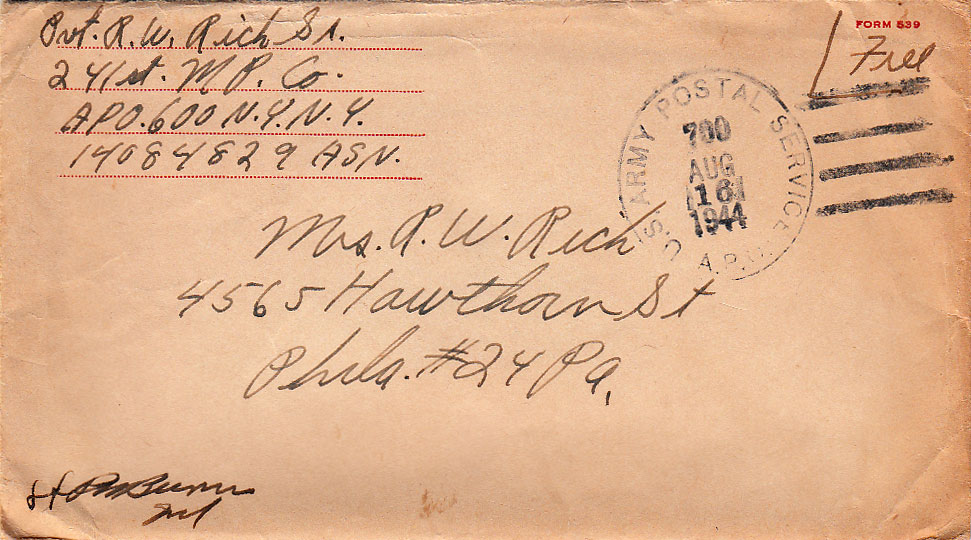 Pvt. R. W. Rich Sr.
241st. M P. Co.
APO. 600 N.Y. N.Y.
14084829 ASN.
FORM 539
Free
U.S. ARMY POSTAL SERVICE
700
AUG
16
1944
A.P.O.
Mrs. R. W. Rich
4565 Hawthorn St
Phila. #24 Pa.